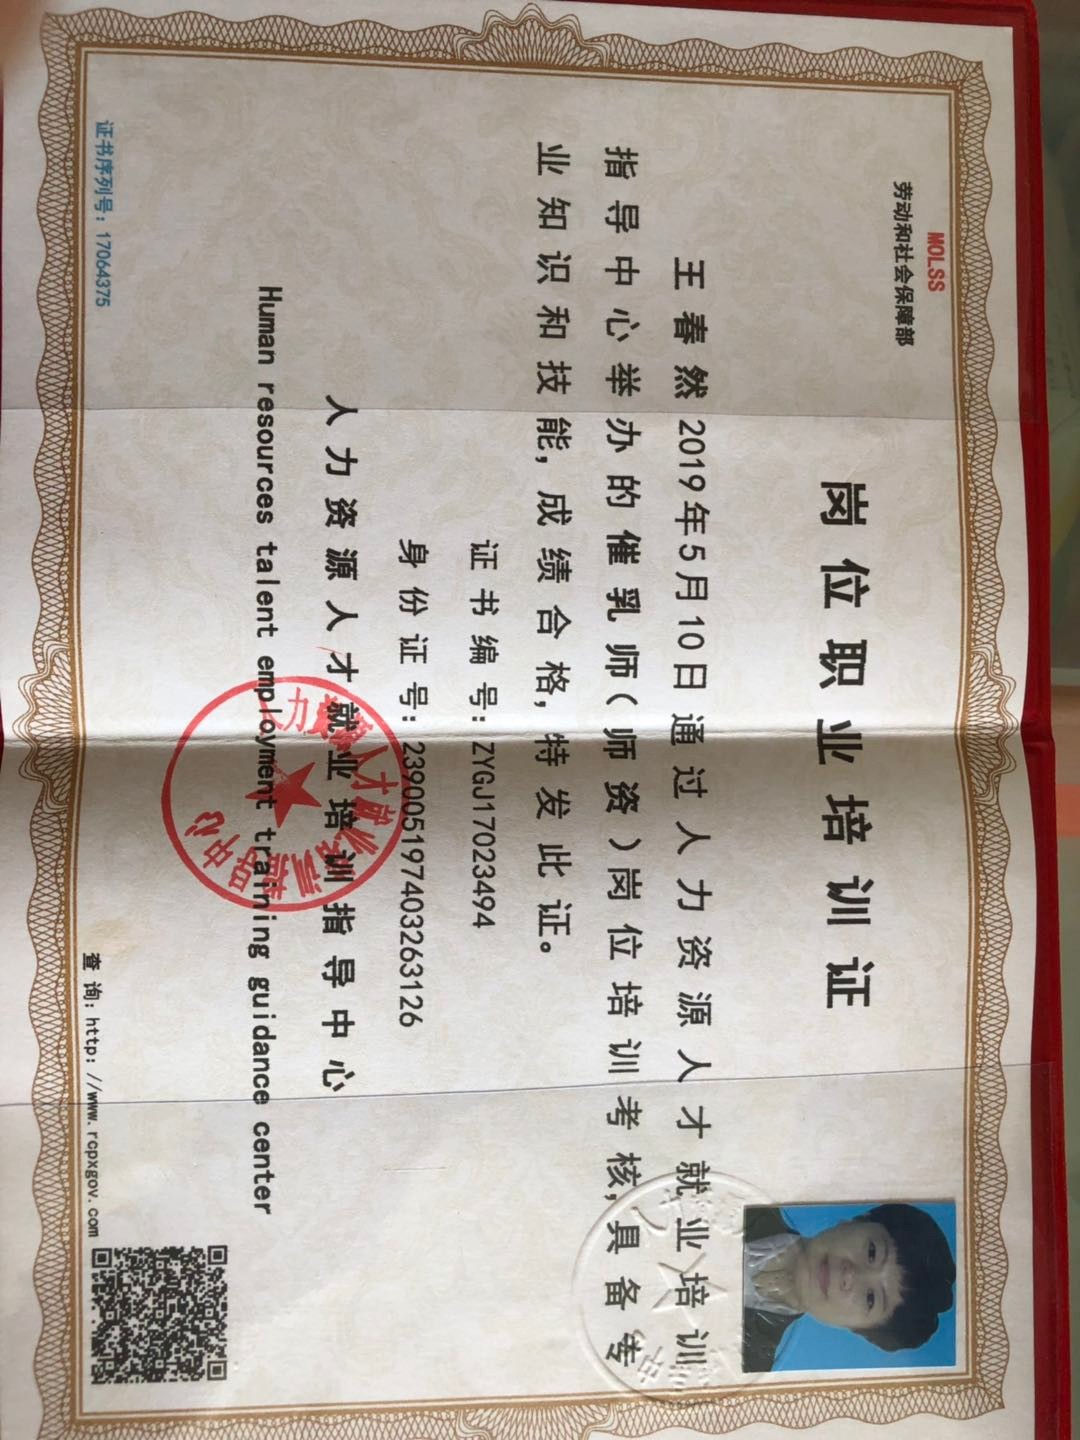 MOLSS
劳动和社会保障部
岗位职业培训证
王春然2019年5月10日通过人力资源人才就业培训
指导中心举办的催乳师(师资)岗位培训考核,具备专
业知识和技能,成绩合格,特发此证。
证书编号:ZYGJ17023494
身份证号:239005197403263126
人力资源人才就业培训指导中心
Human resources talent employment training guidance center
证书序列号:17064375
查询:http://www.rcpxgov.com